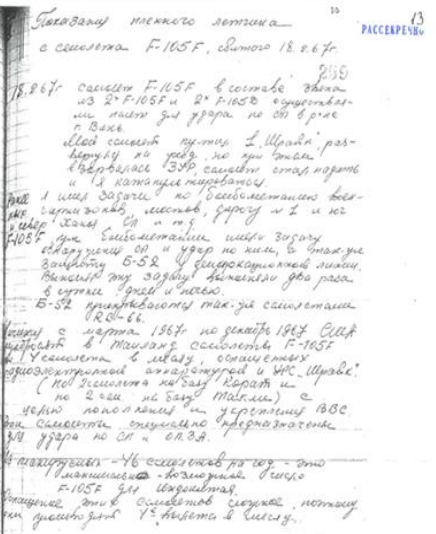 13
РАССЕКРЕЧЕНО
Показания пленного летчика
с самолета F-105F, сбитого 18.2.67г.
259
18.2.67г самолет F-105F в составе звена
из 2х F-105F и 2х F-105D осуществля-
ли полет для удара по СП в р-не
г. Винь.
Мой самолет пустил 1 „Шрайк", раз-
но при этом
взорвалась ЗУР, самолет стал падать
и я катапультировался.
Ранее я имел задачи по бомбометанию
мостов, дорогу №1 и юг
Ханоя СП и т.д.
F-105F для бомбометания имели задачу
обнаружения СП и удар по ним, а так-же
B-52 у демаркационной линии.
эту задачу выполняли два раза
в сутки днем и ночью.
B-52 прикрываются так-же самолетами
RB-66.
с марта 1967г по декабрь 1967 США
в Таиланд самолеты F-105F
4 самолета в месяц, оснащенных
радиоэлектронной аппаратурой и „Шрайк".
(по 2 самолета на базу Корат и
по 2 сам. на базу Такли) с
целью пополнения и укрепления ВВС.
Эти самолеты специально предназначены
для удара по СП и
46 самолетов на год - это
максимально-возможное число
F-105F для Индокитая.
Оснащение этих самолетов сложное, поэтому
4е в месяц.